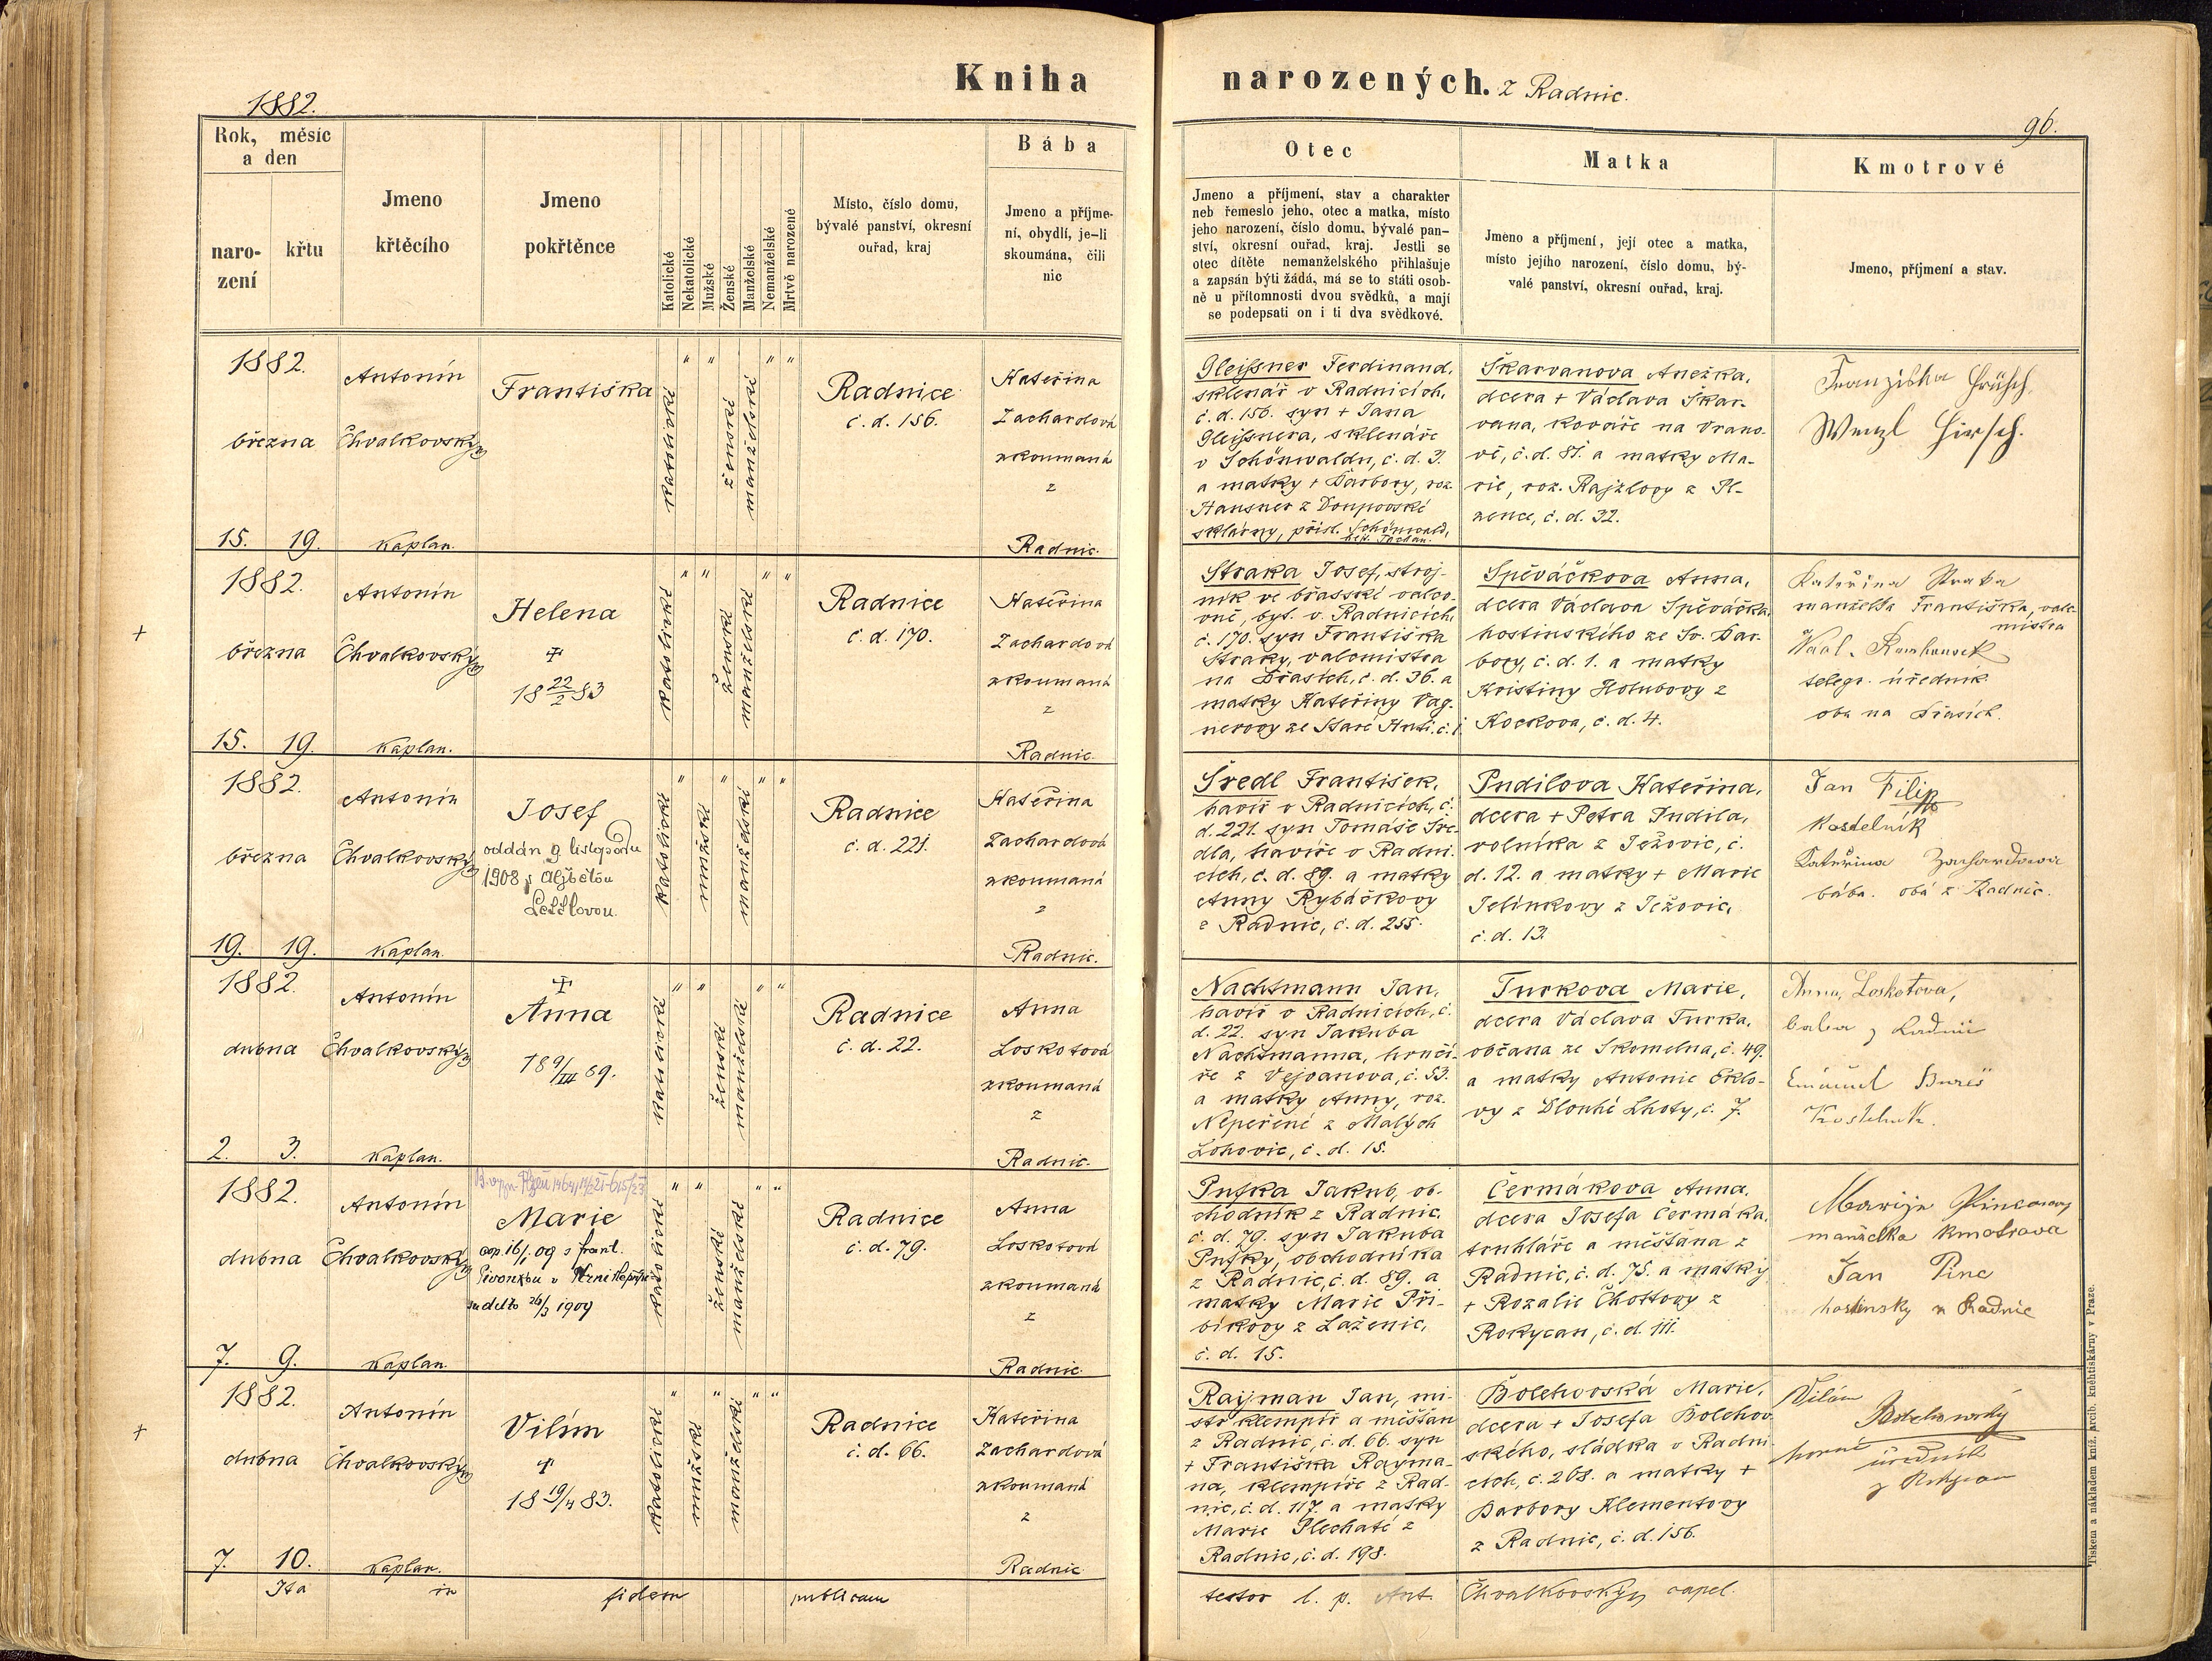 Kniha
narozených.
z Radnic.
1882.
96.
Rok, měsíc
a den
naro-
zení
křtu
Jmeno
křtěcího
Jmeno
pokřtěnce
Katolické
Nekatolické
Mužské
Ženské
Manželské
Nemanželské
Mrtvě narozené
Místo, číslo domu,
bývalé panství, okresní
ouřad, kraj
Bába
Jmeno a příjme-
ní, obydlí, je-li
skoumána, čili
nic
Otec
Jmeno a příjmení, stav a charakter
neb řemeslo jeho, otec a matka, místo
jeho narození, číslo domu, bývalé pan-
ství, okresní ouřad, kraj. Jestli se
otec dítěte nemanželského přihlašuje
a zapsán býti žádá, má se to státi osob-
ně u přítomnosti dvou svědků, a mají
se podepsati on i ti dva svědkové.
Matka
Jmeno a příjmení, její otec a matka,
místo jejího narození, číslo domu, bý-
valé panství, okresní ouřad, kraj.
Kmotrové
Jmeno, příjmení a stav.
1882.
března
15. 19.
Antonín
Chvalkovský
kaplan.
Františka
katolické
" "
ženské
manželské
" "
Radnice
č. d. 156.
Kateřina
Zachardová
zkoumaná
z
Radnic.
Gleißner Ferdinand,
sklenář v Radnicích,
č. d. 156. syn + Jana
Gleißnera, sklenáře
v Schönwaldu, č. d. 3.
a matky + Barbory, roz.
Hausner z Doupovské
sklárny, přísl. Schönwald,
hejt. Tachau.
Škarvanova Anežka,
dcera + Václava Škar-
vana, kováře na Vrano-
vě, č. d. 81. a matky Ma-
rie, roz. Rajzlovy z Pl-
zence, č. d. 32.
Franziska Hirsch.
Wenzl Hirsch.
+
1882.
března
15. 19.
Antonín
Chvalkovský
kaplan.
Helena
+
18 22/2 83
katolické
" "
ženské
manželské
" "
Radnice
č. d. 170.
Kateřina
Zachardová
zkoumaná
z
Radnic.
Straka Josef, stroj-
ník ve břasské valco-
vně, byt. v Radnicích,
č. 170. syn Františka
Straky, valcmistra
na Břasích, č. d. 36. a
matky Kateřiny Vag-
nerovy ze Staré Huti, č. 1.
Spěváčkova Anna,
dcera Václava Spěváčka,
hostinského ze Sv. Bar-
bory, č. d. 1. a matky
Kristiny Holubovy z
Kockova, č. d. 4.
Kateřina Straka
manželka Františka, valc-
mistra
telegr. úředník
oba na Břasích.
1882.
března
19. 19.
Antonín
Chvalkovský
kaplan.
Josef
oddán 9 listopadu
1908 s Aljbětou
katolické
"
mužské
"
manželské
" "
Radnice
č. d. 221.
Kateřina
Zachardová
zkoumaná
z
Radnic.
Šredl František,
havíř v Radnicích, č.
d. 221. syn Tomáše Šre-
dla, havíře v Radni-
cích, č. d. 89. a matky
Anny Rybáčkovy
z Radnic, č. d. 255.
Pudilova Kateřina,
dcera + Petra Pudila,
rolníka z Ježovic, č.
d. 12. a matky + Marie
Jelínkovy z Ježovic,
č. d. 13.
Jan Filip
kostelník
Kateřina Zachardova
bába. obá z Radnic.
1882.
dubna
2. 3.
Antonín
Chvalkovský
kaplan.
+
Anna
18 9/III 89.
katolické
" "
ženské
manželské
" "
Radnice
č. d. 22.
Anna
Loskotová
zkoumaná
z
Radnic.
Nachtmann Jan,
havíř v Radnicích, č.
d. 22. syn Jakuba
Nachtmanna, hrnčí-
ře z Vejvanova, č. 53.
a matky Anny, roz.
Nepeřené z Malých
Lohovic, č. d. 15.
Turkova Marie,
dcera Václava Turka,
občana ze Skomelna, č. 49.
a matky Antonie Eklo-
vy z Dlouhé Lhoty, č. 7.
Anna Loskotova,
baba z Radnic
Emanuel Bureš
Kostelník.
1882.
dubna
7. 9.
Antonín
Chvalkovský
kaplan.
Marie
cop. 16/1 09 s Frant.
26/2 1909
katolické
" "
ženské
manželské
" "
Radnice
č. d. 79.
Anna
Loskotová
zkoumaná
z
Radnic.
Pufka Jakub, ob-
chodník z Radnic,
č. d. 79. syn Jakuba
Pufky, obchodníka
z Radnic, č. d. 89. a
matky Marie Při-
bíkovy z Laženic,
č. d. 15.
Čermákova Anna,
dcera Josefa Čermáka,
truhláře a měšťana z
Radnic, č. d. 75. a matky
+ Rozalie Chottovy z
Rokycan, č. d. 111.
Marije Pincova
manželka kmotrova
Jan Pinc
hostinsky z Radnic
+
1882.
dubna
7. 10.
Antonín
Chvalkovský
kaplan.
Vilím
+
18 19/4 83.
katolické
"
mužské
"
manželské
" "
Radnice
č. d. 66.
Kateřina
Zachardová
zkoumaná
z
Radnic
Rayman Jan, mi-
str klempíř a měšťan
z Radnic, č. d. 66. syn
+ Františka Rayma-
na, klempíře z Rad-
nic, č. d. 117. a matky
Marie Plechaté z
Radnic, č. d. 198.
Bolehovská Marie,
dcera + Josefa Bolehov-
ského, sládka v Radni-
cích, č. 268. a matky +
Barbory Klementovy
z Radnic, č. d. 156.
Vilém
Bolehovský
horní úředník
Ita in fidem publicam
testor l. p. Ant. Chvalkovský, capel.
Tiskem a nákladem kníž. arcib. kněhtiskárny v Praze.